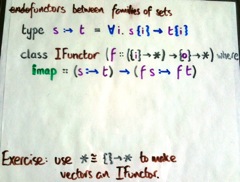 endofunctors between families of sets
type s :→ t = ∀i. s{i} → t{i}
class IFunctor (f :: ({i}→*) → {o}→*) where
fmap :: (s :→ t) → (f s :→ f t)
Exercise: use * ≅ {}→* to make
vectors an IFunctor.